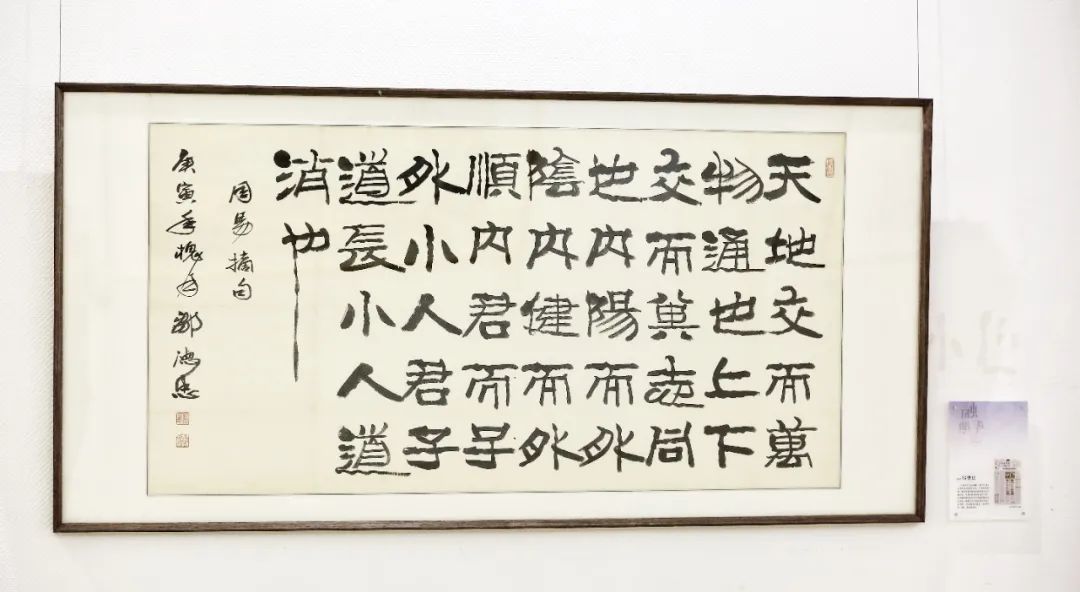 天地交而萬
物通也上下
交而其志同
也内陽而外
陰内健而外
順内君而子
外小人君子
道長小人道
消也
周易摘句
庚寅年槐月鄒德忠